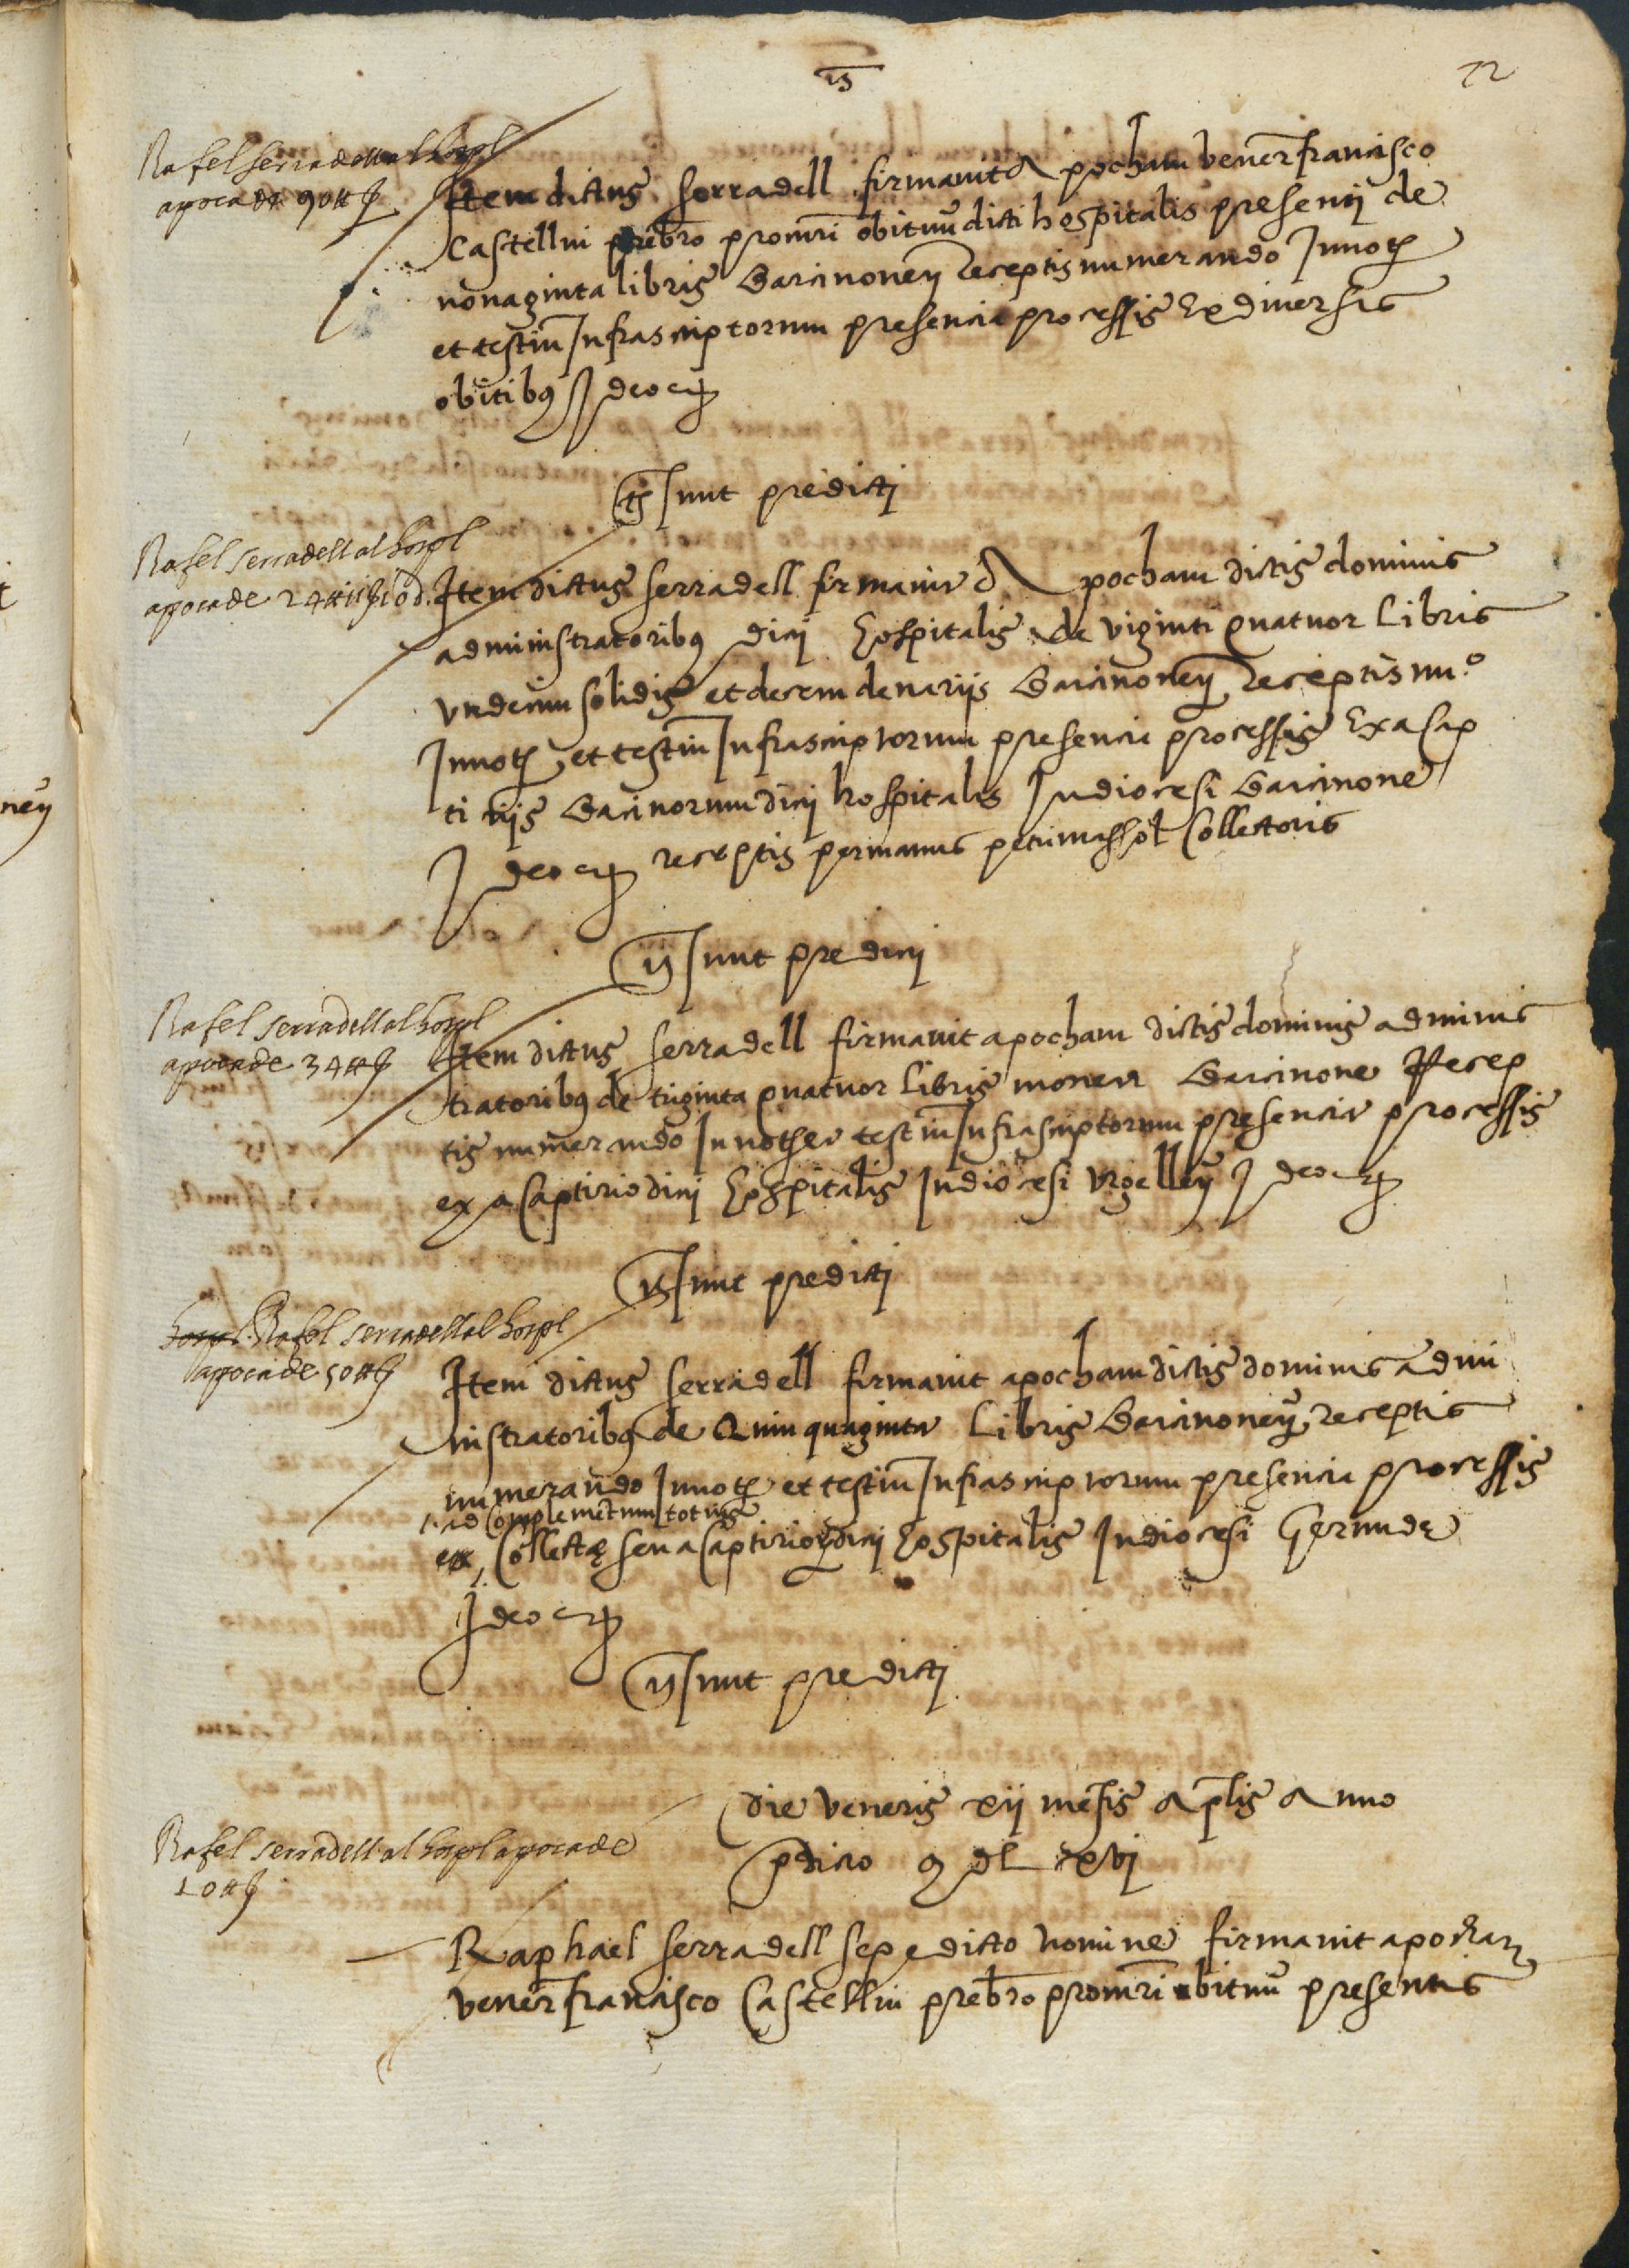 72
Rafel serradell al hospl
apoca de 90 ₶ ẞ
Item dictus serradell firmavit apocham vener francisco
Castellvi prebro procuri obituu dicti hospitalis presenti de
nonaginta libris Barcinonen receptis numerando In not
et testiu Infrascriptorum presencia processis Ex diversis
obitibus Ideo
Ts sunt predicti
Rafel serradell al hospl
apoca de 24 ₶ 11 ẞ 10 d.
Item dictus serradell firmavit apocham dictis dominis
administratoribus dicti hospitalis de viginti quatuor libris
undecim solidis et decem denariis Barcinonen receptis nu.º
In not et testiu Infrascriptorum presencia processis Ex acap
tiriis Bacinorum dicti hospitalis In diocesi Barcinone
Ideo receptis per manus petri massot Collectoris
Ts sunt predicti
Rafel serradell al hospl
apoca de 34 ₶ ẞ
Item dictus serradell firmavit apocham dictis dominis adminis
tratoribus de triginta quatuor libris monete Barcinone Recep
tis numerando In not et testiu Infrascriptorum presencia processis
ex acaptirio dicti hospitalis In diocesi Urgellen Ideo
Ts sunt predicti
hospl. Rafel serradell al hospl
apoca de 50 ₶ ẞ
Item dictus serradell firmavit apocham dictis dominis admi
nistratoribus de Quinquaginta Libris Barcinonen receptis
numerando In not et testiu Infrascriptorum presencia processis
ad Complementum totius
ex Collectę seu acaptirio dicti hospitalis In diocesi Gerundę
Ideo
Ts sunt predicti
Die veneris xii mesis aplis Anno
pdicto
Rafel serradell al hospl apoca de
10 ₶ ẞ
Raphael serradell sepedicto nomine firmavit apocham
vener francisco Castellvi prebro procuri obituu presentis